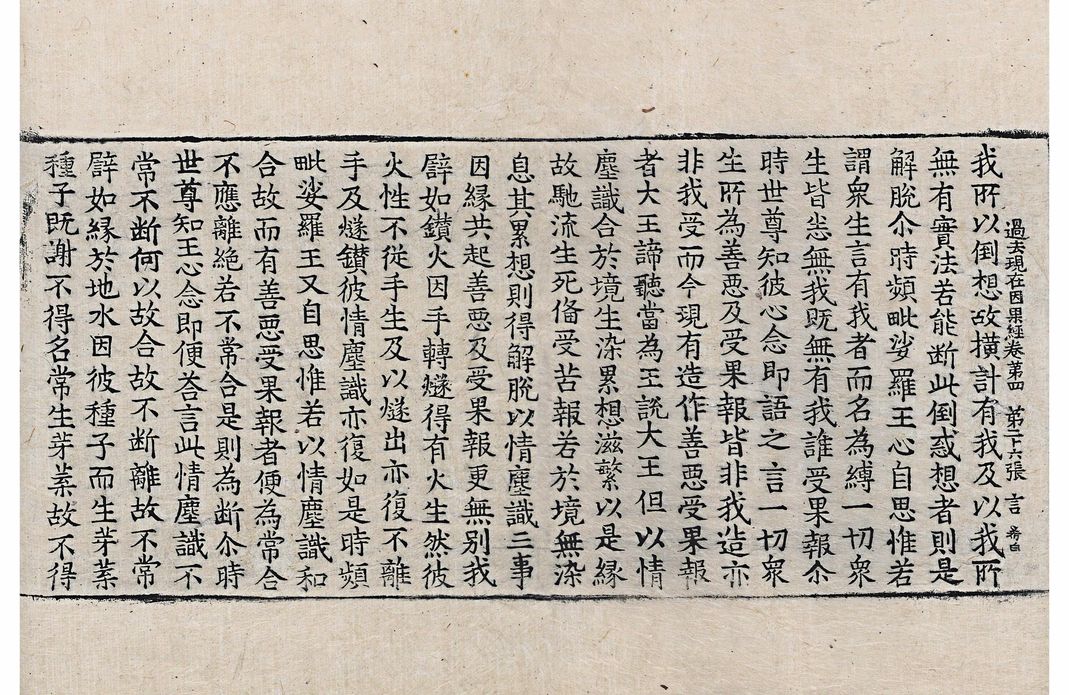 我所以倒想故橫計有我及以我所
過去現在因果經卷第四 第二十六張 言
無有實法若能斷此倒惑想者則是
解脫尒時頻毗娑羅王心自思惟若
謂衆生言有我者而名為縛一切衆
生皆悉無我既無有我誰受果報尒
時世尊知彼心念即語之言一切衆
生所為善惡及受果報皆非我造亦
非我受而今現有造作善惡受果報
者大王諦聽當為王說大王但以情
塵識合於境生染累想滋繁以是緣
故馳流生死俻受苦報若於境無染
息其累想則得解脫以情塵識三事
因緣共起善惡及受果報更無別我
譬如鑚火因手轉燧得有火生然彼
火性不從手生及以燧出亦復不離
手及燧鑚彼情塵識亦復如是時頻
毗娑羅王又自思惟若以情塵識和
合故而有善惡受果報者便為常合
不應離絶若不常合是則為斷尒時
世尊知王心念即便荅言此情塵識不
常不断何以故合故不断離故不常
譬如緣於地水因彼種子而生芽葉
種子既謝不得名常生芽葉故不得